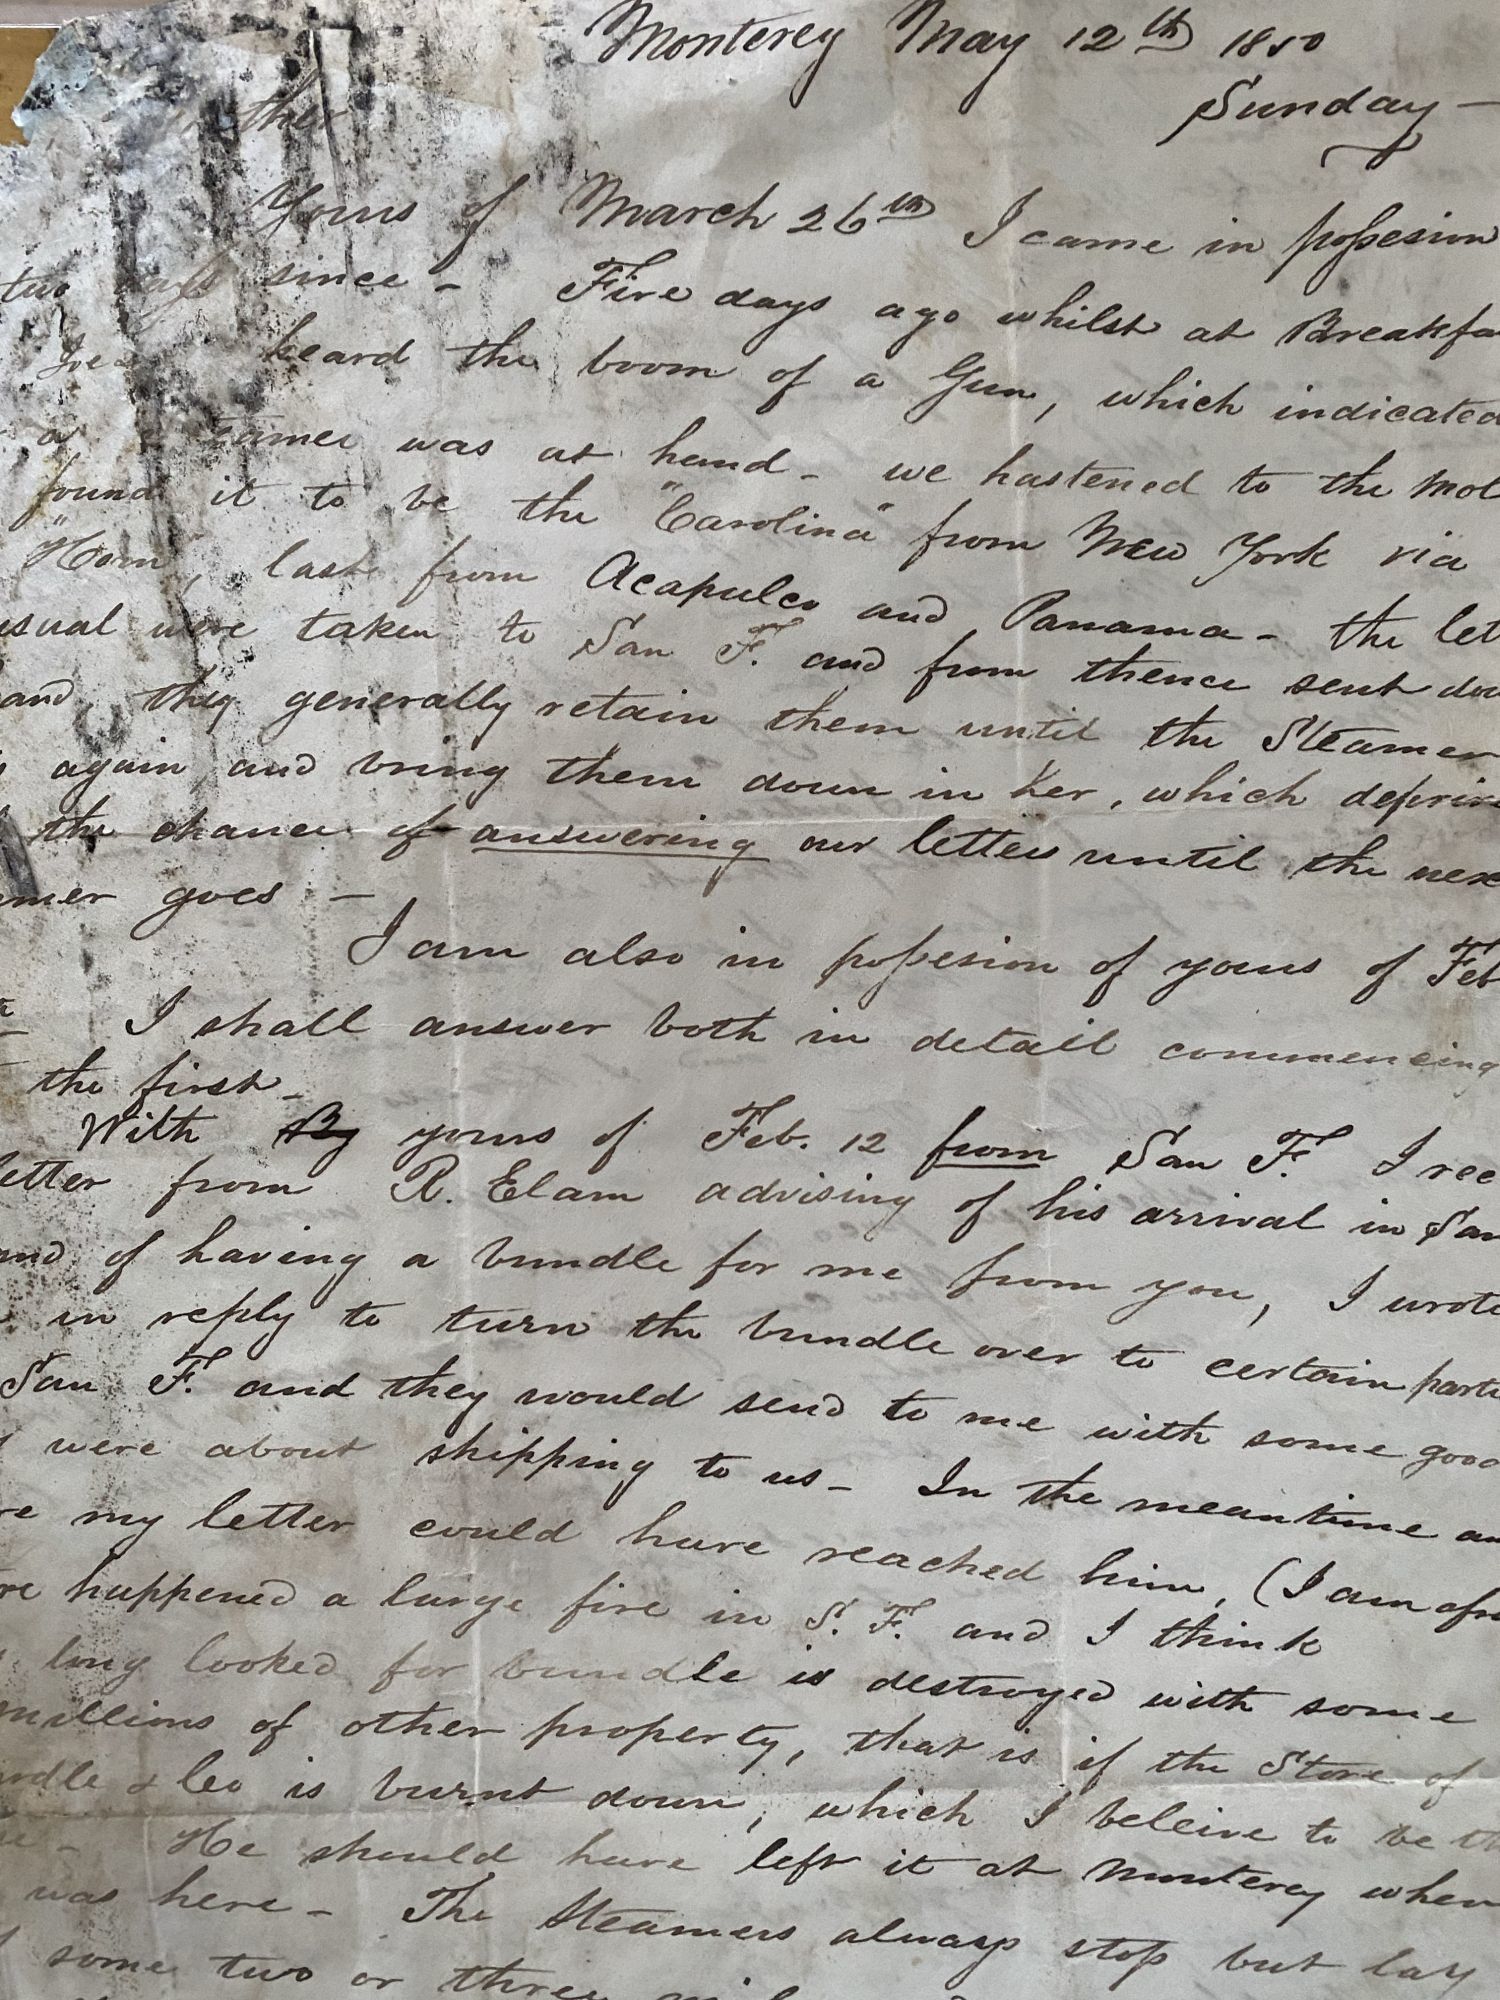 Monterey May 12th 1850
Sunday —
Yours of March 26th I came in possesion
two days since - Five days ago whilst at Breakfa
heard the boom of a Gun, which indicated
a was at hand - we hastened to the mol
found it to be the "Carolina" from New York via
"Horn", last from Acapulco and Panama - the let
usual were taken to San F. and from thence sent dow
and they generally retain them until the Steamer
again and bring them down in her, which deprive
the chance of answering our letters until the nex
mer goes —
I am also in possesion of yours of Feb
I shall answer both in detail commencing
the first -
With By yours of Feb. 12 from San F. I rec
letter from R. Elam advising of his arrival in San
and of having a bundle for me from you, I wrote
in reply to turn the bundle over to certain parti
San F. and they would send to me with some good
were about shipping to us - In the meantime an
re my letter could have reached him, (I am afra
re happened a large fire in S. F. and I think
long looked for bundle is destroyed with some
millions of other property, that is if the Store of
ndle & Co is burnt down, which I beleive to be th
- He should have left it at Monterey when
was here - The Steamers always stop but lay
some two or three